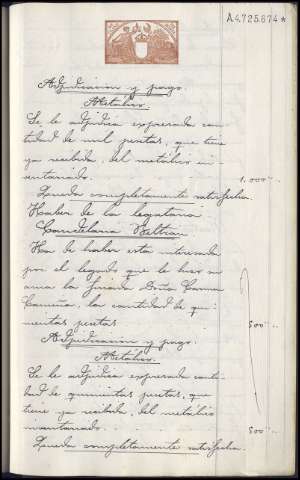 A4.725.674*
Adjudicacion y pago.
Metálico.
Se le adjudica expresada can-
tidad de mil pesetas, que tiene
ya recibida, del metálico in-
ventariado. 1.000"
Queda completamente satisfecha.
Haber de la legataria
Candelaria Beltrán
Ha de haber esta interesada
por el legado que le hizo su
ama la finada Doña Carma
la cantidad de qui-
nientas pesetas 500"
Adjudicación y pago.
Metálico.
Se le adjudica expresada canti-
dad de quinientas pesetas, que
tiene ya recibida, del metálico
inventariado. 500"
Queda completamente satisfecha.